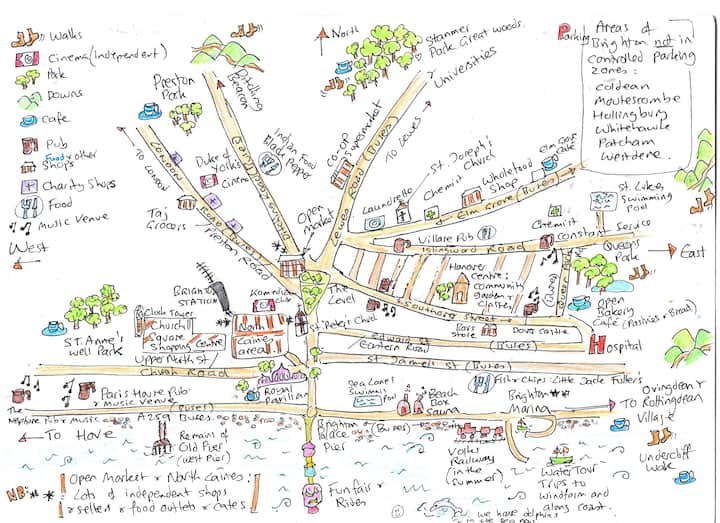 Walks
Cinema (Independent)
Park
Downs
Cafe
Pub
Food & other
Shops
Charity Shops
Food
Music Venue
West
North
Stanmer
Park Great woods.
Parking
Areas of
Brighton not in
Controlled Parking
Zones:
Coldean
Moulsecombe
Hollingbury
Whitehawke
Patcham
Westdene.
Preston
Park
Ditchling
Beacon
Universities
To London
London
Road (Buses)
Preston Road
Duke of
Yorks
Cinema
Indian Food
Black Pepper
CO-OP
Supermarket
Lewes Road (Buses)
To Lewes
Laundrette
St. Joseph's
Church
Chemist
Wholefood
Shop
Elm Grove
Cafe
Elm Grove (Buses)
St. Lukes
Swimming
Pool
Taj
Grocers
Open
Market
Village Pub
Islingword Road
Chemist
Constant Service
Queens
Park
East
Hanover
Centre:
Community
garden &
Classes
(Buses)
Queens Park
Brighton
Station
Komedia
The
Level
Southover Street
Open
Bakery
Cafe (Pastries & Bread)
Clock Tower
Church
Square
Shopping Centre
North
Laine
area
St Peter's Church
Dave's
Store
Dover Castle
Hospital
St. Anne's
Well Park
Upper North St
Church Road
Edward St
Eastern Road
(Buses)
St. James St (Buses)
Paris House Pub
& Music Venue
Royal
Pavilion
Sea Lanes
Swimming
Pool
Beach
Box
Sauna
Fish & Chips: Little Jack Fullers
Brighton
Marina
Ovingdean &
To Rottingdean
Village
The
Neptune Pub & Music
A259
(Buses)
Buses.
To Hove
Remains of
Old Pier
(West Pier)
Brighton
Palace
Pier
(Buses)
Volks
Railway
(in the
Summer)
Water Tour
Trips to
Windfarm and
along coast.
Undercliff
Walk
NB:
Open Market & North Laine:
Lots of independent shops
& sellers & food outlets & cafes
Funfair &
Rides
We have dolphins
in the sea now